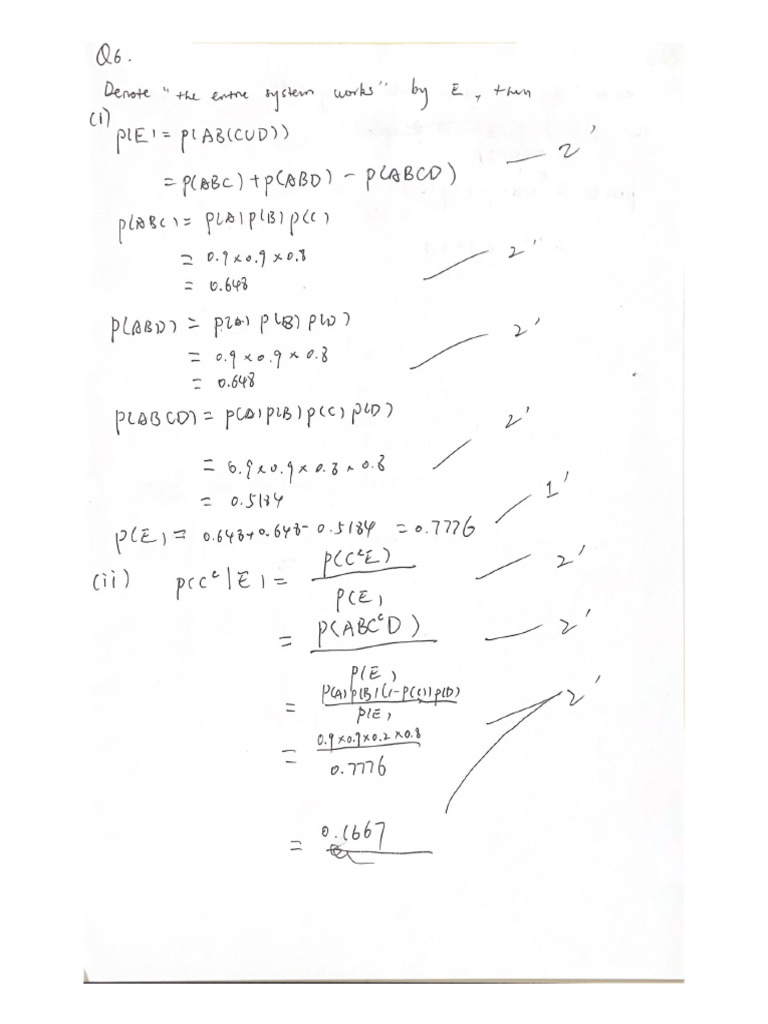 Q6.
Denote "the entire system works" by E, then
(i)
P(E) = P(AB(C∪D))
= P(ABC) + P(ABD) - P(ABCD) — 2'
P(ABC) = P(A) P(B) P(C)
= 0.9 × 0.9 × 0.8 — 2'
= 0.648
P(ABD) = P(A) P(B) P(D) — 2'
= 0.9 × 0.9 × 0.8
= 0.648
P(ABCD) = P(A) P(B) P(C) P(D) — 2'
= 0.9 × 0.9 × 0.8 × 0.8
= 0.5184
P(E) = 0.648 + 0.648 - 0.5184 = 0.7776 — 1'
(ii) P(Cᶜ|E) = P(CᶜE) — 2'
P(E)
= P(ABCᶜD) — 2'
P(E)
= P(A) P(B) (1-P(C)) P(D) — 2'
P(E)
= 0.9 × 0.9 × 0.2 × 0.8
0.7776
= 0.1667